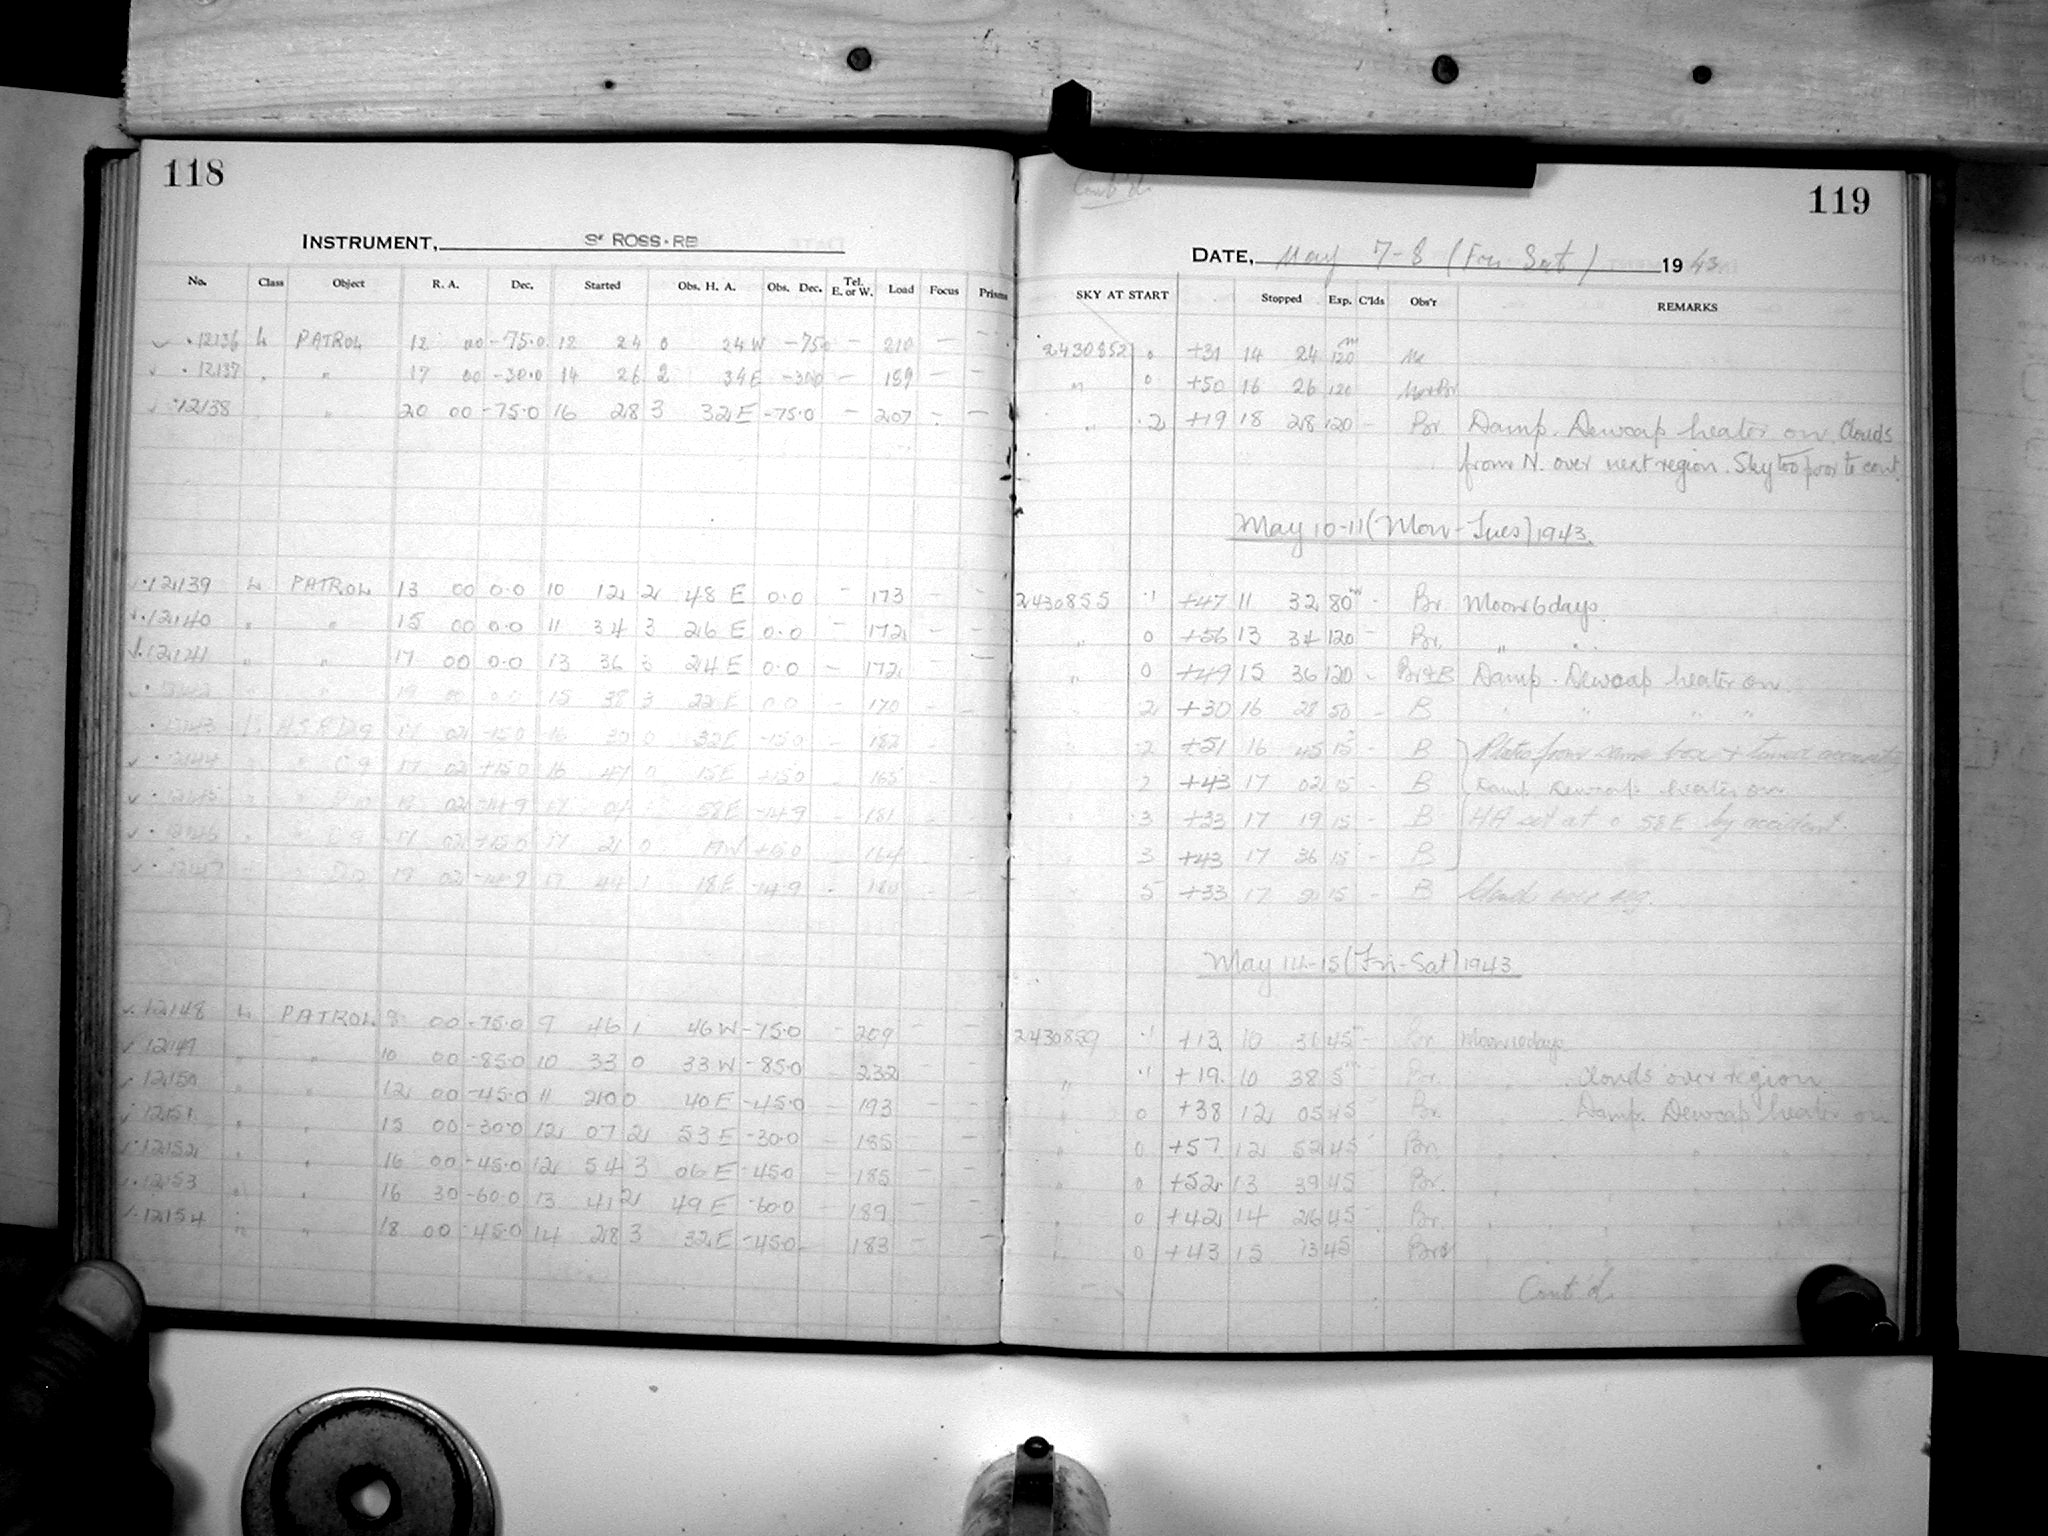 118
INSTRUMENT, 3" ROSS-RB
No. Class Object R. A. Dec. Started Obs. H. A. Obs. Dec. Tel. E. or W. Load Focus Prisms
12136 L PATROL 12 00 -75.0 12 24 0 24 W -75.0 — 210 — —
12137 " " 17 00 -30.0 14 26 2 34 E -30.0 — 189 — —
12138 " 20 00 -75.0 16 28 3 32 E -75.0 — 207 — —
12139 L PATROL 13 00 0.0 10 12 2 48 E 0.0 — 173 — —
12140 " " 15 00 0.0 11 34 3 26 E 0.0 — 172 — —
12141 " " 17 00 0.0 13 36 3 24 E 0.0 — 172 — —
" 19 00 0.0 15 38 3 22 E 0.0 — 170 — —
12143 17 02 -15.0 16 30 0 32 E -15.0 — 182 —
12144 " C 9 17 02 +15.0 16 47 0 15 E +15.0 — 165 —
02 -14.9 17 04 58 E -14.9 — 181 —
C 9 17 02 +15.0 17 21 0 19 W +15.0 — 164 —
19 02 -14.9 17 44 1 18 E -14.9 —
12148 L PATROL 8 00 -75.0 9 46 1 46 W -75.0 — 209 — —
12149 " " 10 00 -85.0 10 33 0 33 W -85.0 — 232 — —
12150 " " 12 00 -45.0 11 20 0 40 E -45.0 — 193 — —
12151 " " 15 00 -30.0 12 07 2 53 E -30.0 — 185 — —
12152 " " 16 00 -45.0 12 54 3 06 E -45.0 — 185 — —
12153 " " 16 30 -60.0 13 41 2 49 E -60.0 — 189 — —
12154 " " 18 00 -45.0 14 28 3 32 E -45.0 — 183 — —
Cont'd.
119
DATE, May 7-8 (Fri Sat) 1943
SKY AT START Stopped Exp. C'lds Obs'r REMARKS
2430852 0 +31 14 24 120m
" 0 +50 16 26 120
" .2 +19 18 28 120 — Br. Damp. Dewcap heater on. Clouds
from N. over next region. Sky too poor to cont.
May 10-11 (Mon-Tues) 1943.
2430855 .1 +47 11 32 80m - Br. Moon 6 days
" 0 +56 13 34 120 - Br. " "
" 0 +49 15 36 120 - Br & B Damp. Dewcap heater on.
2 +30 16 28 50 - B " " " "
2 +51 16 45 15 - B Plates from same box + timed accurately
2 +43 17 02 15 - B Damp. Dewcap heater on
3 +33 17 19 15 - B HA set at 0 58 E by accident.
3 +43 17 36 15 - B
5 +33 17 15 - B Clouds over reg.
May 14-15 (Fri-Sat) 1943
2430859 .1 +13 10 31 45m - Br. Moon 10 days
" .1 +19 10 38 5 Br. " Clouds over region
" 0 +38 12 05 45 Br. " Damp. Dewcap heater on
" 0 +57 12 52 45 Br.
" 0 +52 13 39 45 Br.
" 0 +42 14 26 45 Br.
" 0 +43 15 13 45
Cont'd.